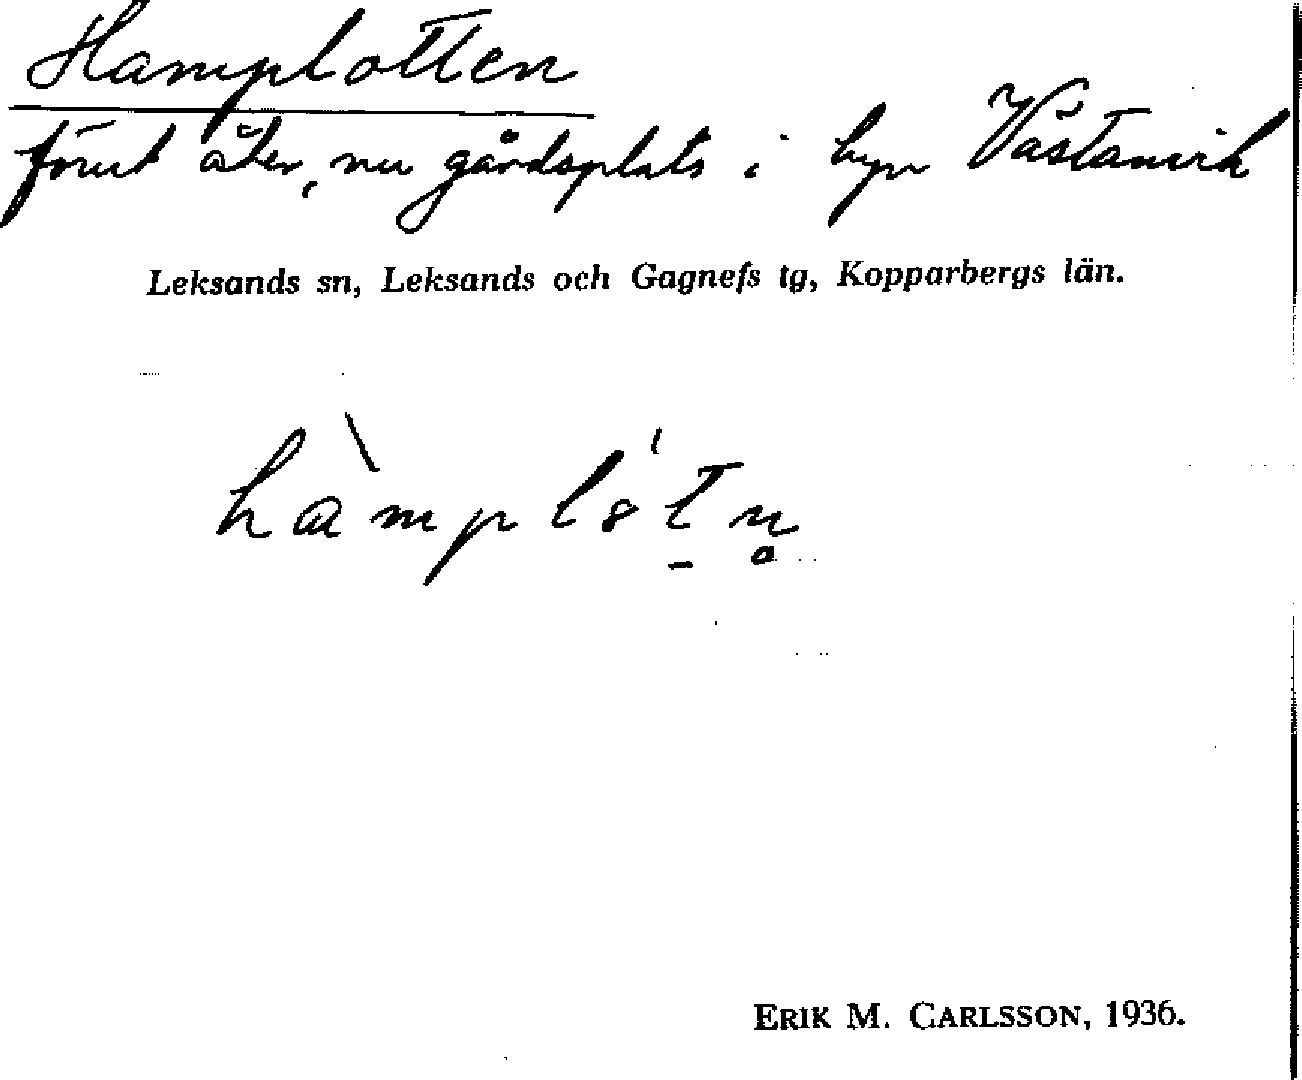 Hamplotten
förut åker, nu gårdsplats i byn Västanvik
Leksands sn, Leksands och Gagnefs tg, Kopparbergs län.
ERIK M. CARLSSON, 1936.